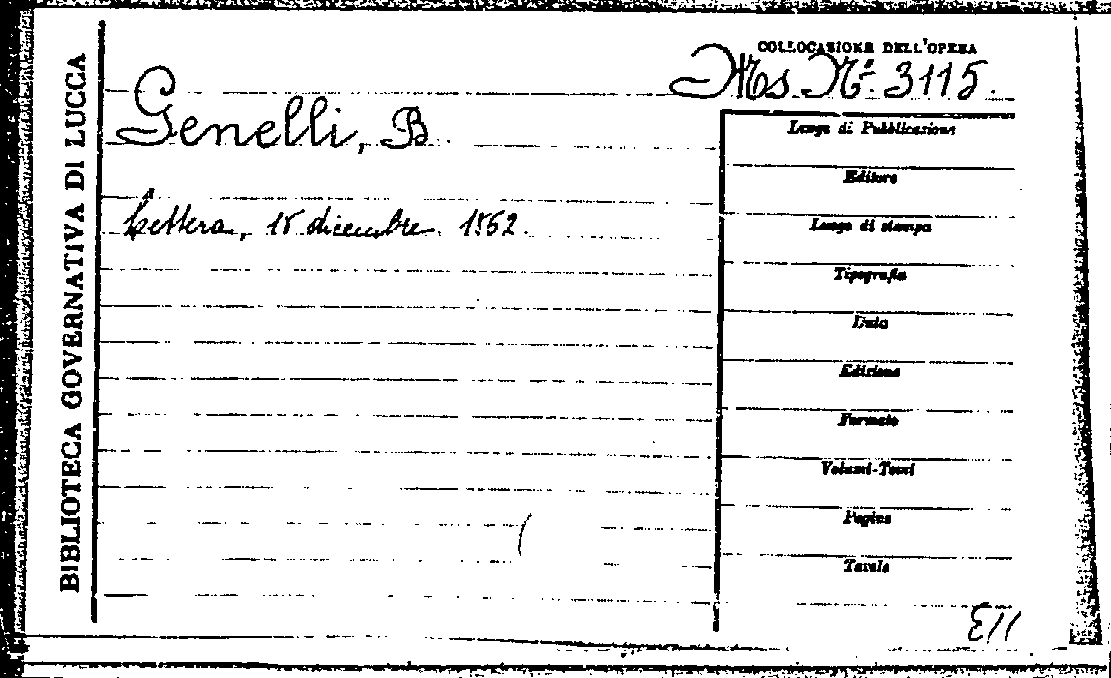 BIBLIOTECA GOVERNATIVA DI LUCCA
COLLOCAZIONE DELL'OPERA
Ms. No. 3115.
Genelli, B.
Lettera, 15 dicembre 1862.
Luogo di Pubblicazione
Editore
Luogo di stampa
Tipografia
Data
Edizione
Formato
Volumi-Tomi
Pagine
Tavole